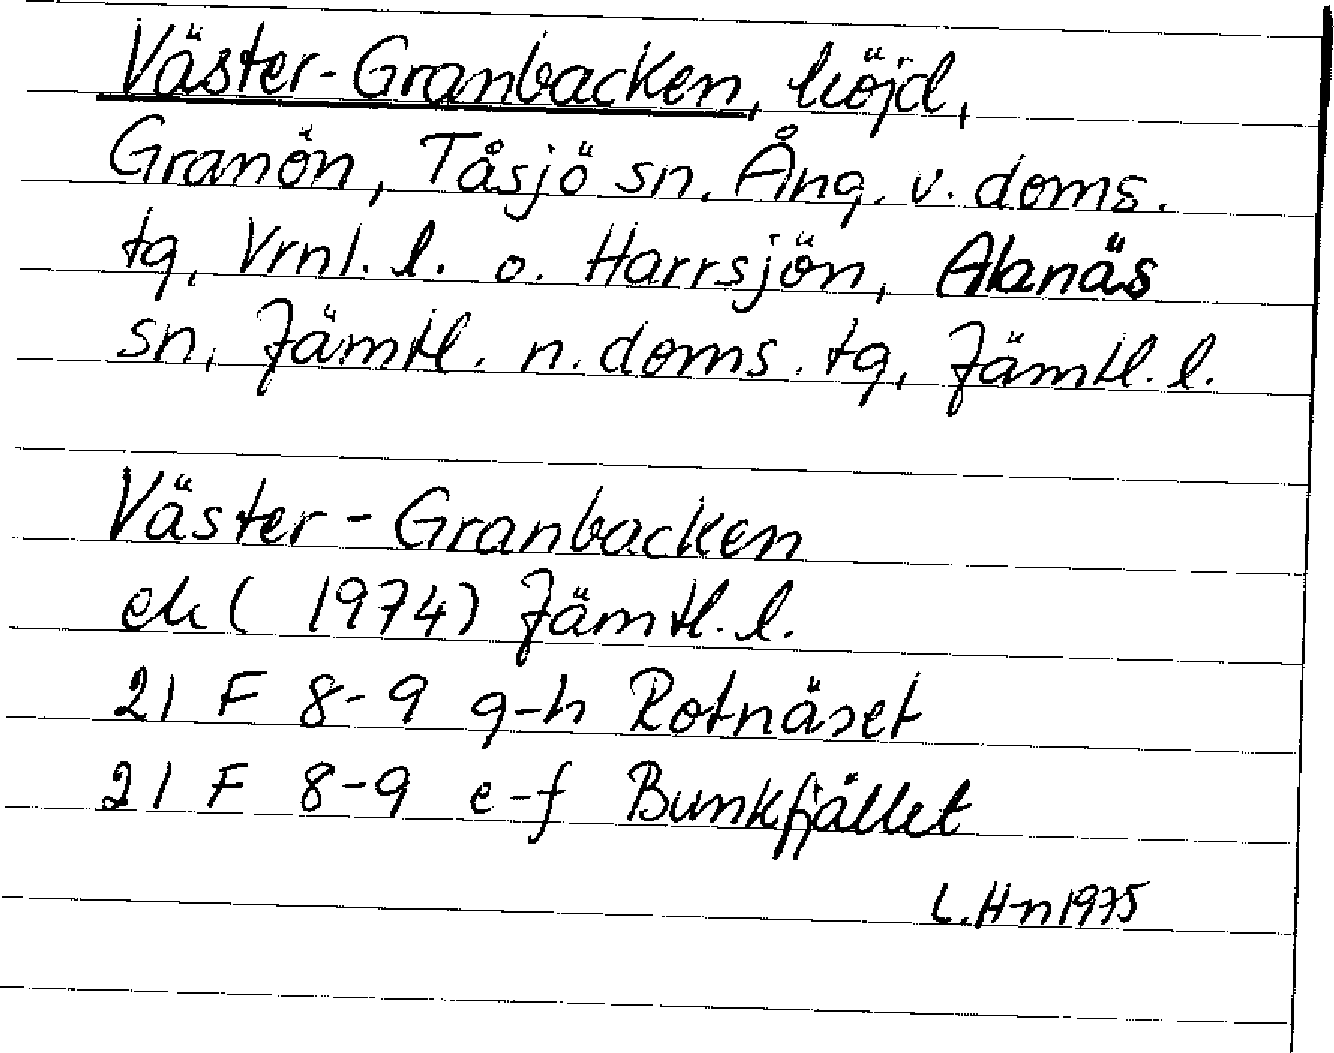 Väster-Granbacken, höjd,
Granön, Tåsjö sn. Ång. v. doms.
tg, Vrnl. l. o. Harrsjön, Alanäs
sn, Jämtl. n. doms. tg, Jämtl. l.
Väster-Granbacken
ek (1974) Jämtl. l.
21 F 8-9 g-h Rotnäset
21 F 8-9 e-f Bunkfjället
L. H-n 1975